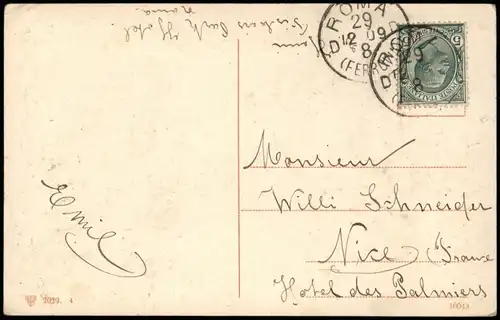 ROMA
29
12 09
8
(FER
Monsieur
Willi Schneider
Nice (France
Hotel des Palmiers
Emil
2029. 4